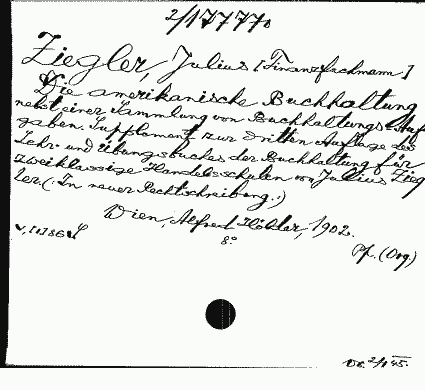 2/17770
Ziegler, Julius [Finanzfachmann]
Die amerikanische Buchhaltung
nebst einer Sammlung von Buchhaltungs-Auf
gaben. Supplement zur dritten Auflage des
Lehr- und Übungsbuches der Buchhaltung für
zweiklassige Handelsschulen von Julius Zieg
ler. (: In neuer Rechtschreibung. :)
Wien, Alfred Hölder, 1902.
8°
Pf. (Org)